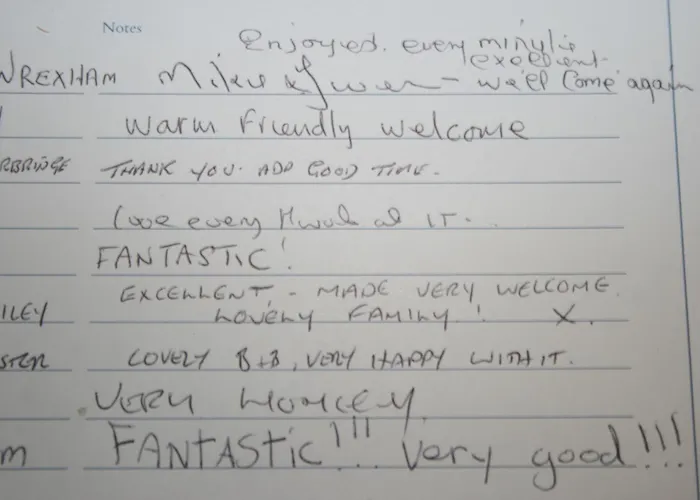 Notes
Enjoyed every minute
excellent.
WREXHAM Mike & Gwen - we'll come again
Warm Friendly Welcome
RBRIDGE THANK YOU. ADD GOOD TIME.
Love every of IT.
FANTASTIC!
EXCELLENT, - MADE VERY WELCOME.
ILEY LOVELY FAMILY! X.
STER LOVELY B+B, VERY HAPPY WITH IT.
VERY HOMELY.
m FANTASTIC!!! Very good!!!